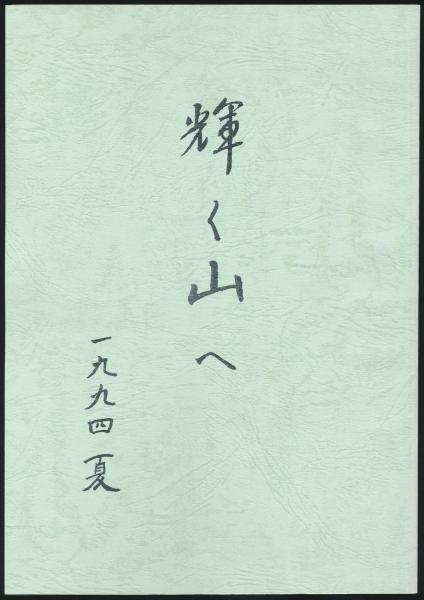 輝く山へ
一九九四夏